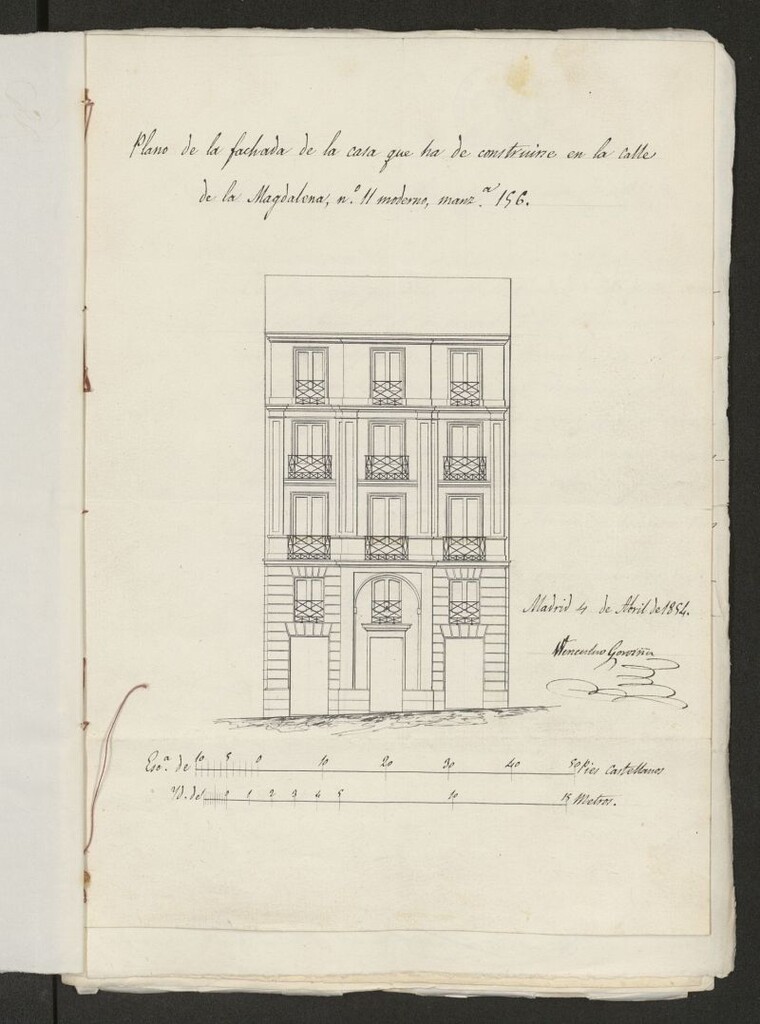 Plano de la fachada de la casa que ha de construirse en la calle
de la Magdalena, n.º 11 moderno, manz.ª 156.
Madrid 4 de Abril de 1854.
Wenceslao Gaviña
Esc.ª de 10 5 0 10 20 30 40 50 Pies castellanos
Yd. de 0 1 2 3 4 5 10 15 Metros.